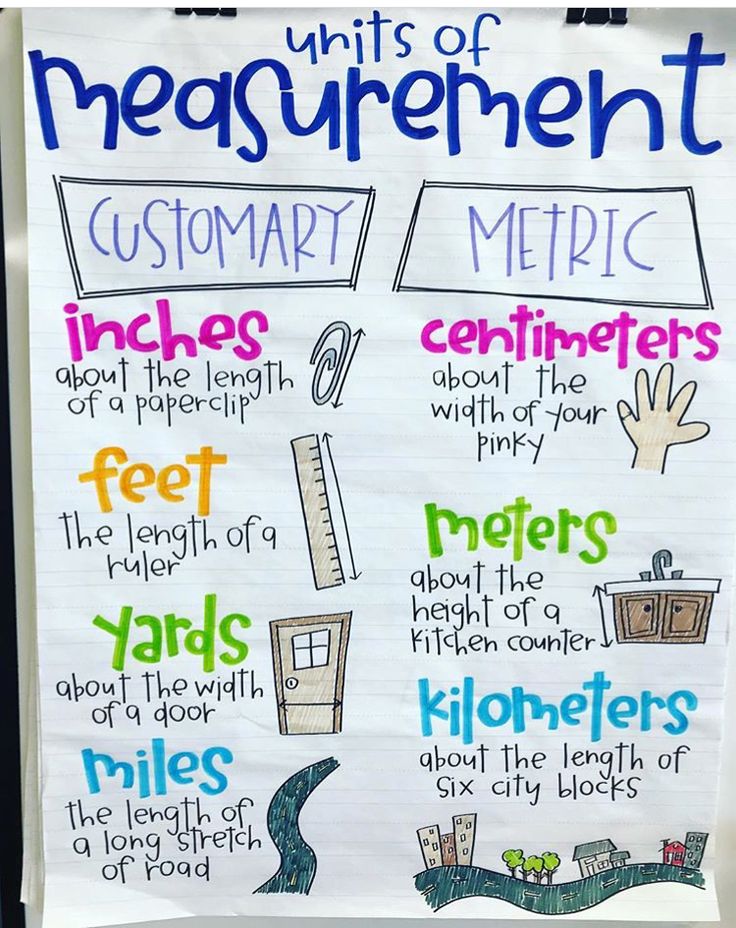 units of
measurement
CUSTOMARY
METRIC
inches
about the length
of a paperclip
feet
the length of a
ruler
yards
about the width
of a door
miles
the length of
a long stretch
of road
centimeters
about the
width of your
pinky
meters
about the
height of a
kitchen counter
kilometers
about the length of
six city blocks